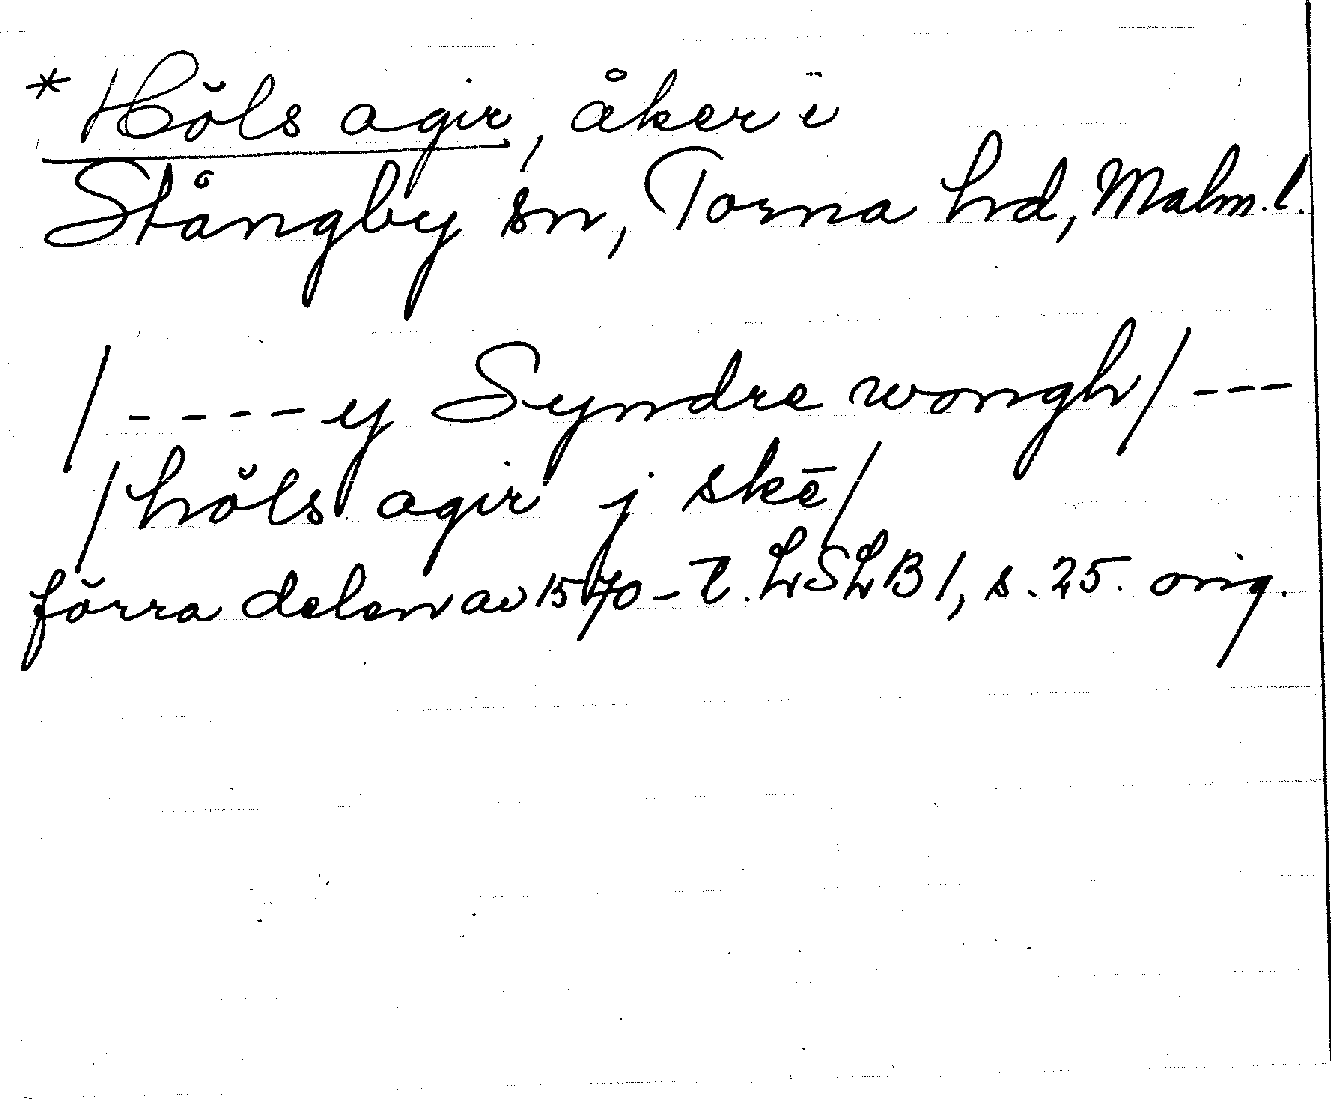 * Hŏls agir, åker i
Stångby sn, Torna hd, Malm. l.
/----y Syndre wongh/---
/hŏls agir j skē/
förra delen av 1570-t. LSLB 1, s. 25. orig.